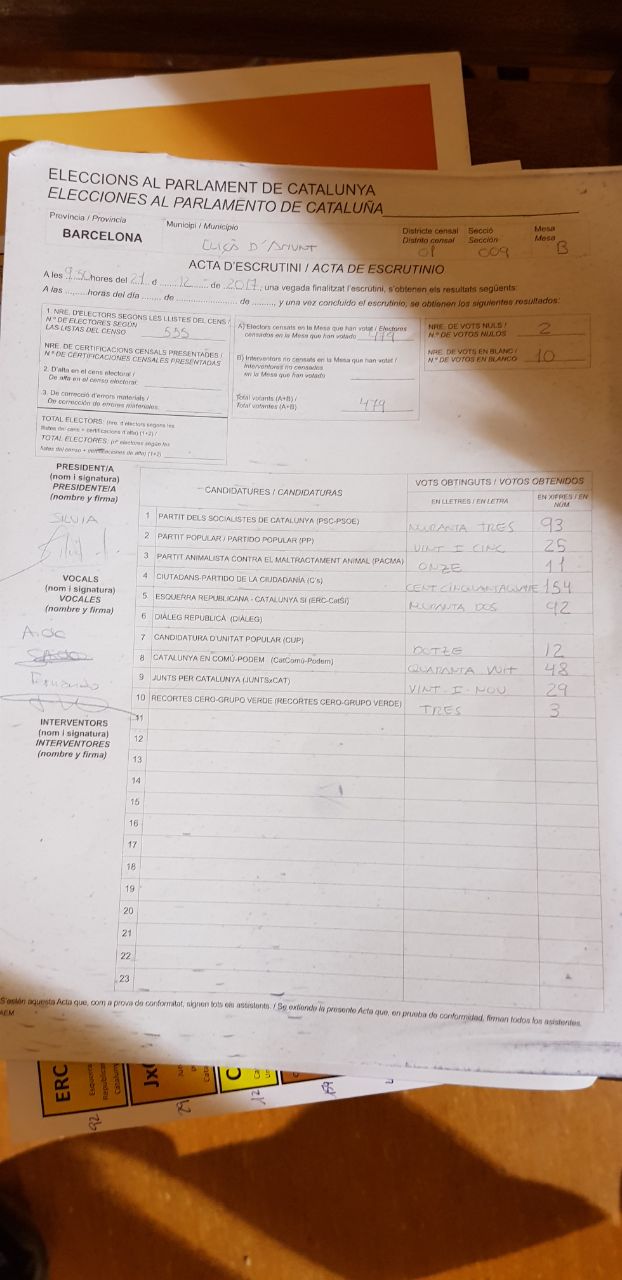 ELECCIONS AL PARLAMENT DE CATALUNYA
ELECCIONES AL PARLAMENTO DE CATALUÑA
Provincia / Provincia
BARCELONA
Municipi / Municipio
LLIÇÀ D'AMUNT
Districte censal
Distrito censal
01
Secció
Sección
009
Mesa
Mesa
B
ACTA D'ESCRUTINI / ACTA DE ESCRUTINIO
A les 9.50 hores del 21 d 12 de 2017, una vegada finalitzat l'escrutini, s'obtenen els resultats següents:
A las ......... horas del día ....... de ........................... de ........, y una vez concluido el escrutinio, se obtienen los siguientes resultados:
1. NRE. D'ELECTORS SEGONS LES LLISTES DEL CENS /
N.º DE ELECTORES SEGÚN
LAS LISTAS DEL CENSO 555
NRE. DE CERTIFICACIONS CENSALS PRESENTADES /
N.º DE CERTIFICACIONES CENSALES PRESENTADAS
2. D'alta en el cens electoral /
De alta en el censo electoral
3. De correcció d'errors materials /
De corrección de errores materiales
TOTAL ELECTORS: (nre. d'electors segons les
llistes del cens + certificacions d'alta) (1+2) /
TOTAL ELECTORES: (nº electores según las
listas del censo + certificaciones de alta) (1+2)
A) Electors censats en la Mesa que han votat / Electores
censados en la Mesa que han votado 479
B) Interventors no censats en la Mesa que han votat /
Interventores no censados
en la Mesa que han votado
Total votants (A+B) /
Total votantes (A+B) 479
NRE. DE VOTS NULS /
N.º DE VOTOS NULOS 2
NRE. DE VOTS EN BLANC /
N.º DE VOTOS EN BLANCO 10
PRESIDENT/A
(nom i signatura)
PRESIDENTE/A
(nombre y firma)
SILVIA
VOCALS
(nom i signatura)
VOCALES
(nombre y firma)
Fernando
INTERVENTORS
(nom i signatura)
INTERVENTORES
(nombre y firma)
CANDIDATURES / CANDIDATURAS
VOTS OBTINGUTS / VOTOS OBTENIDOS
EN LLETRES / EN LETRA
EN XIFRES / EN NÚM.
1 PARTIT DELS SOCIALISTES DE CATALUNYA (PSC-PSOE) NURANTA TRES 93
2 PARTIT POPULAR / PARTIDO POPULAR (PP) VINT I CINC 25
3 PARTIT ANIMALISTA CONTRA EL MALTRACTAMENT ANIMAL (PACMA) ONZE 11
4 CIUTADANS-PARTIDO DE LA CIUDADANÍA (C's) CENT CINQUANTAQUATRE 154
5 ESQUERRA REPUBLICANA - CATALUNYA SÍ (ERC-CatSí) NURANTA DOS 92
6 DIÀLEG REPUBLICÀ (DIÀLEG)
7 CANDIDATURA D'UNITAT POPULAR (CUP) DOTZE 12
8 CATALUNYA EN COMÚ-PODEM (CatComú-Podem) QUARANTA VUIT 48
9 JUNTS PER CATALUNYA (JUNTSxCAT) VINT-I-NOU 29
10 RECORTES CERO-GRUPO VERDE (RECORTES CERO-GRUPO VERDE) TRES 3
11
12
13
14
15
16
17
18
19
20
21
22
23
S'estén aquesta Acta que, com a prova de conformitat, signen tots els assistents. / Se extiende la presente Acta que, en prueba de conformidad, firman todos los asistentes.
ERC
Esquerra
Republicana
92
29
12